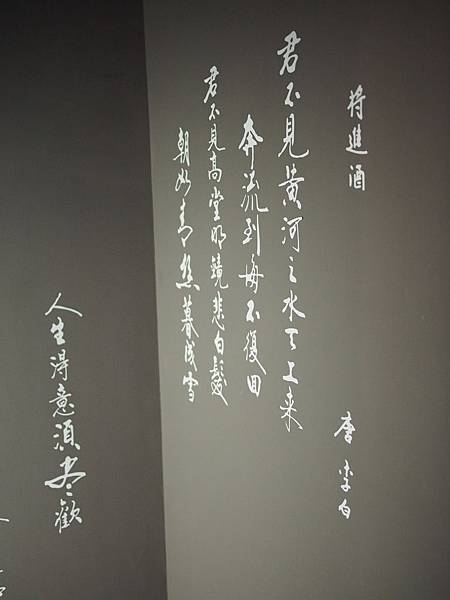 將進酒
唐 李白
君不見黃河之水天上来
奔流到海不復回
君不見高堂明鏡悲白髮
朝如青絲暮成雪
人生得意須盡歡